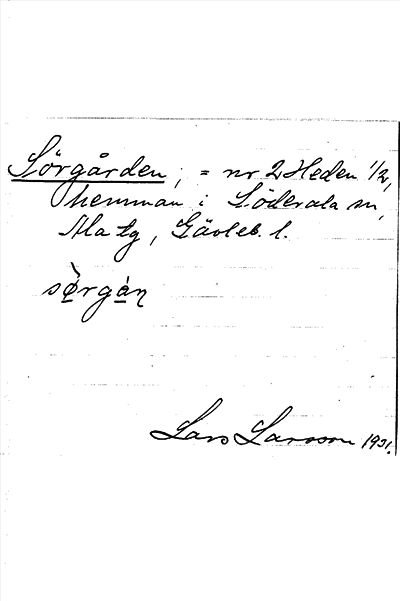 Sörgården, = nr 2 Heden 1/2,
hemman i Söderala sn,
Ala tg, Gävleb. l.
sø̀rgàn
Lars Larsson 1931.